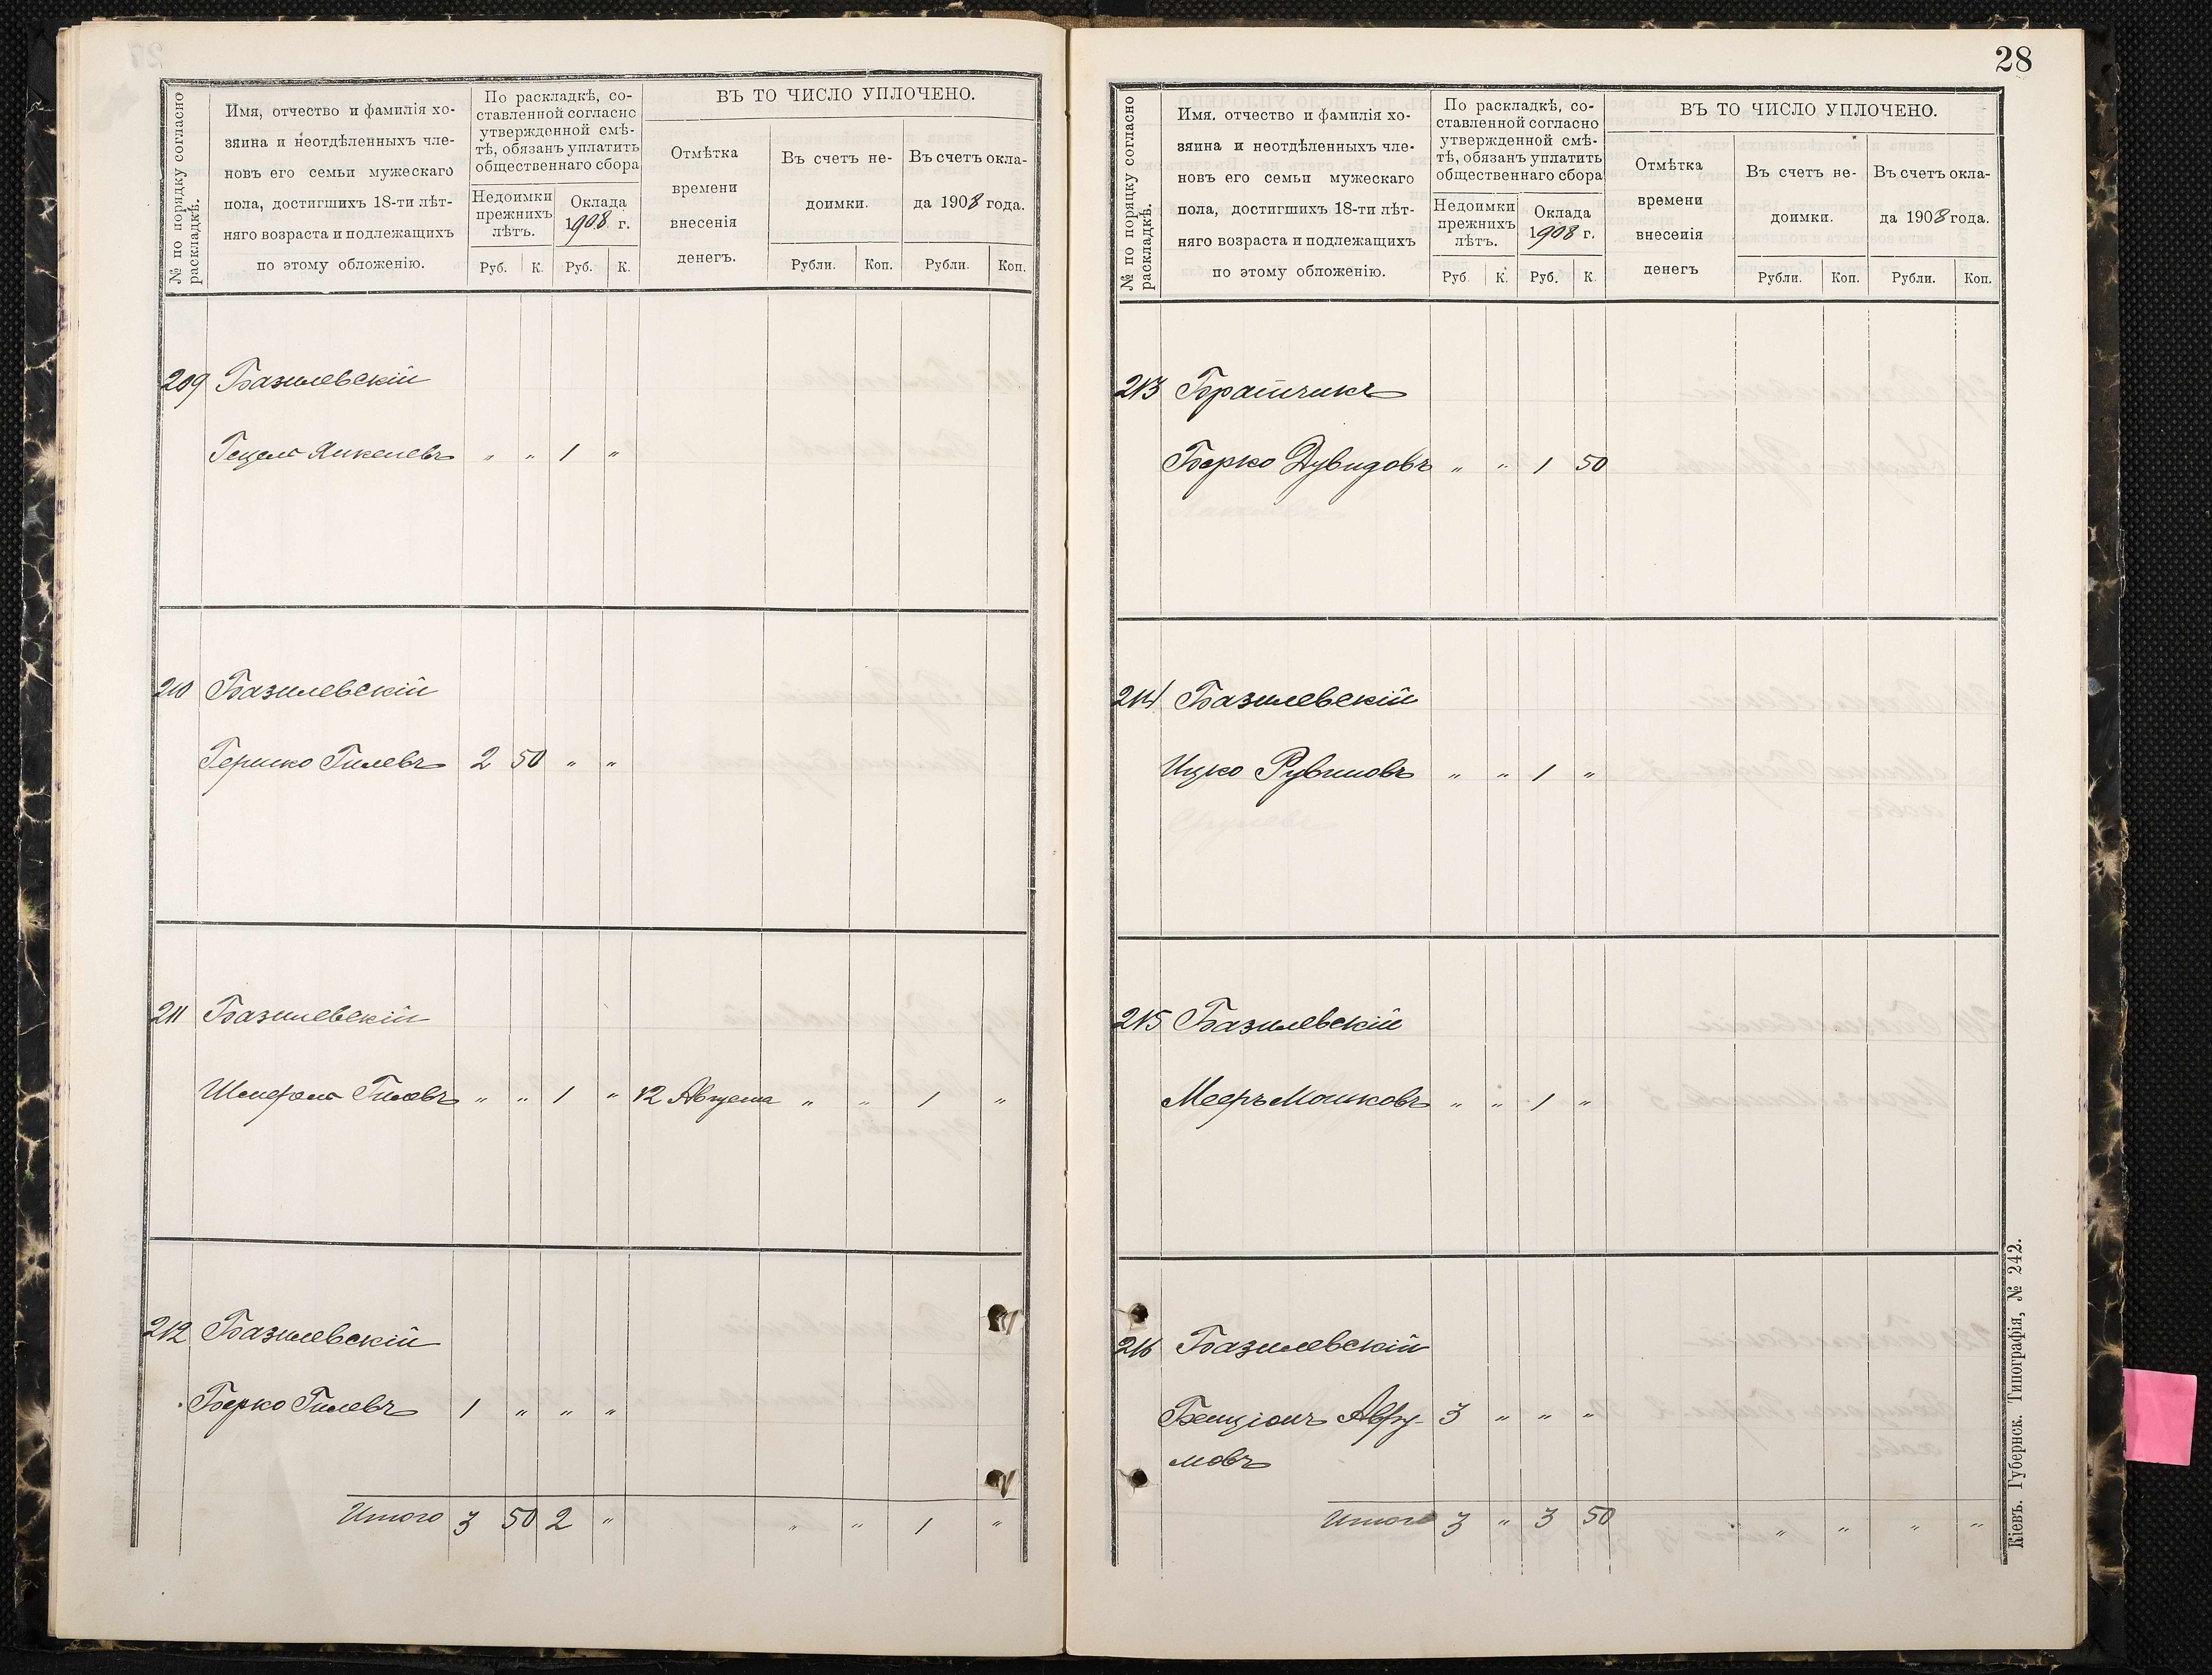 № по порядку согласно
раскладкѣ.
Имя, отчество и фамилія хо-
зяина и неотдѣленныхъ чле-
новъ его семьи мужескаго
пола, достигшихъ 18-ти лѣт-
няго возраста и подлежащихъ
по этому обложенію.
По раскладкѣ, со-
ставленной согласно
утвержденной смѣ-
тѣ, обязанъ уплатить
общественнаго сбора
Недоимки
прежнихъ
лѣтъ.
Оклада
1908 г.
Руб. К. Руб. К.
ВЪ ТО ЧИСЛО УПЛОЧЕНО.
Отмѣтка
времени
внесенія
денегъ.
Въ счетъ не-
доимки.
Въ счетъ окла-
да 1908 года.
Рубли. Коп. Рубли. Коп.
209 Базилевскій
Гецель Янкелевъ " " 1 "
210 Базилевскій
Гершко Гилевъ 2 50 " "
211 Базилевскій
Шмерель Гилевъ " " 1 " 12 Августа " " 1 "
212 Базилевскій
Берко Гилевъ 1 " " "
Итого 3 50 2 " " " 1 "
28
№ по порядку согласно
раскладкѣ.
Имя, отчество и фамилія хо-
зяина и неотдѣленныхъ чле-
новъ его семьи мужескаго
пола, достигшихъ 18-ти лѣт-
няго возраста и подлежащихъ
по этому обложенію.
По раскладкѣ, со-
ставленной согласно
утвержденной смѣ-
тѣ, обязанъ уплатить
общественнаго сбора
Недоимки
прежнихъ
лѣтъ.
Оклада
1908 г.
Руб. К. Руб. К.
ВЪ ТО ЧИСЛО УПЛОЧЕНО.
Отмѣтка
времени
внесенія
денегъ
Въ счетъ не-
доимки.
Въ счетъ окла-
да 1908 года.
Рубли. Коп. Рубли. Коп.
213 Братчикъ
Берко Дувидовъ " " 1 50
214 Базилевскій
Ицко Рувиновъ " " 1 "
215 Базилевскій
Мееръ Мошковъ " " 1 "
216 Базилевскій
Бенціонъ Авру- 3 " " "
мовъ
Итого 3 " 3 50 " " " "
Кіевъ. Губернск. Типографія, № 242.